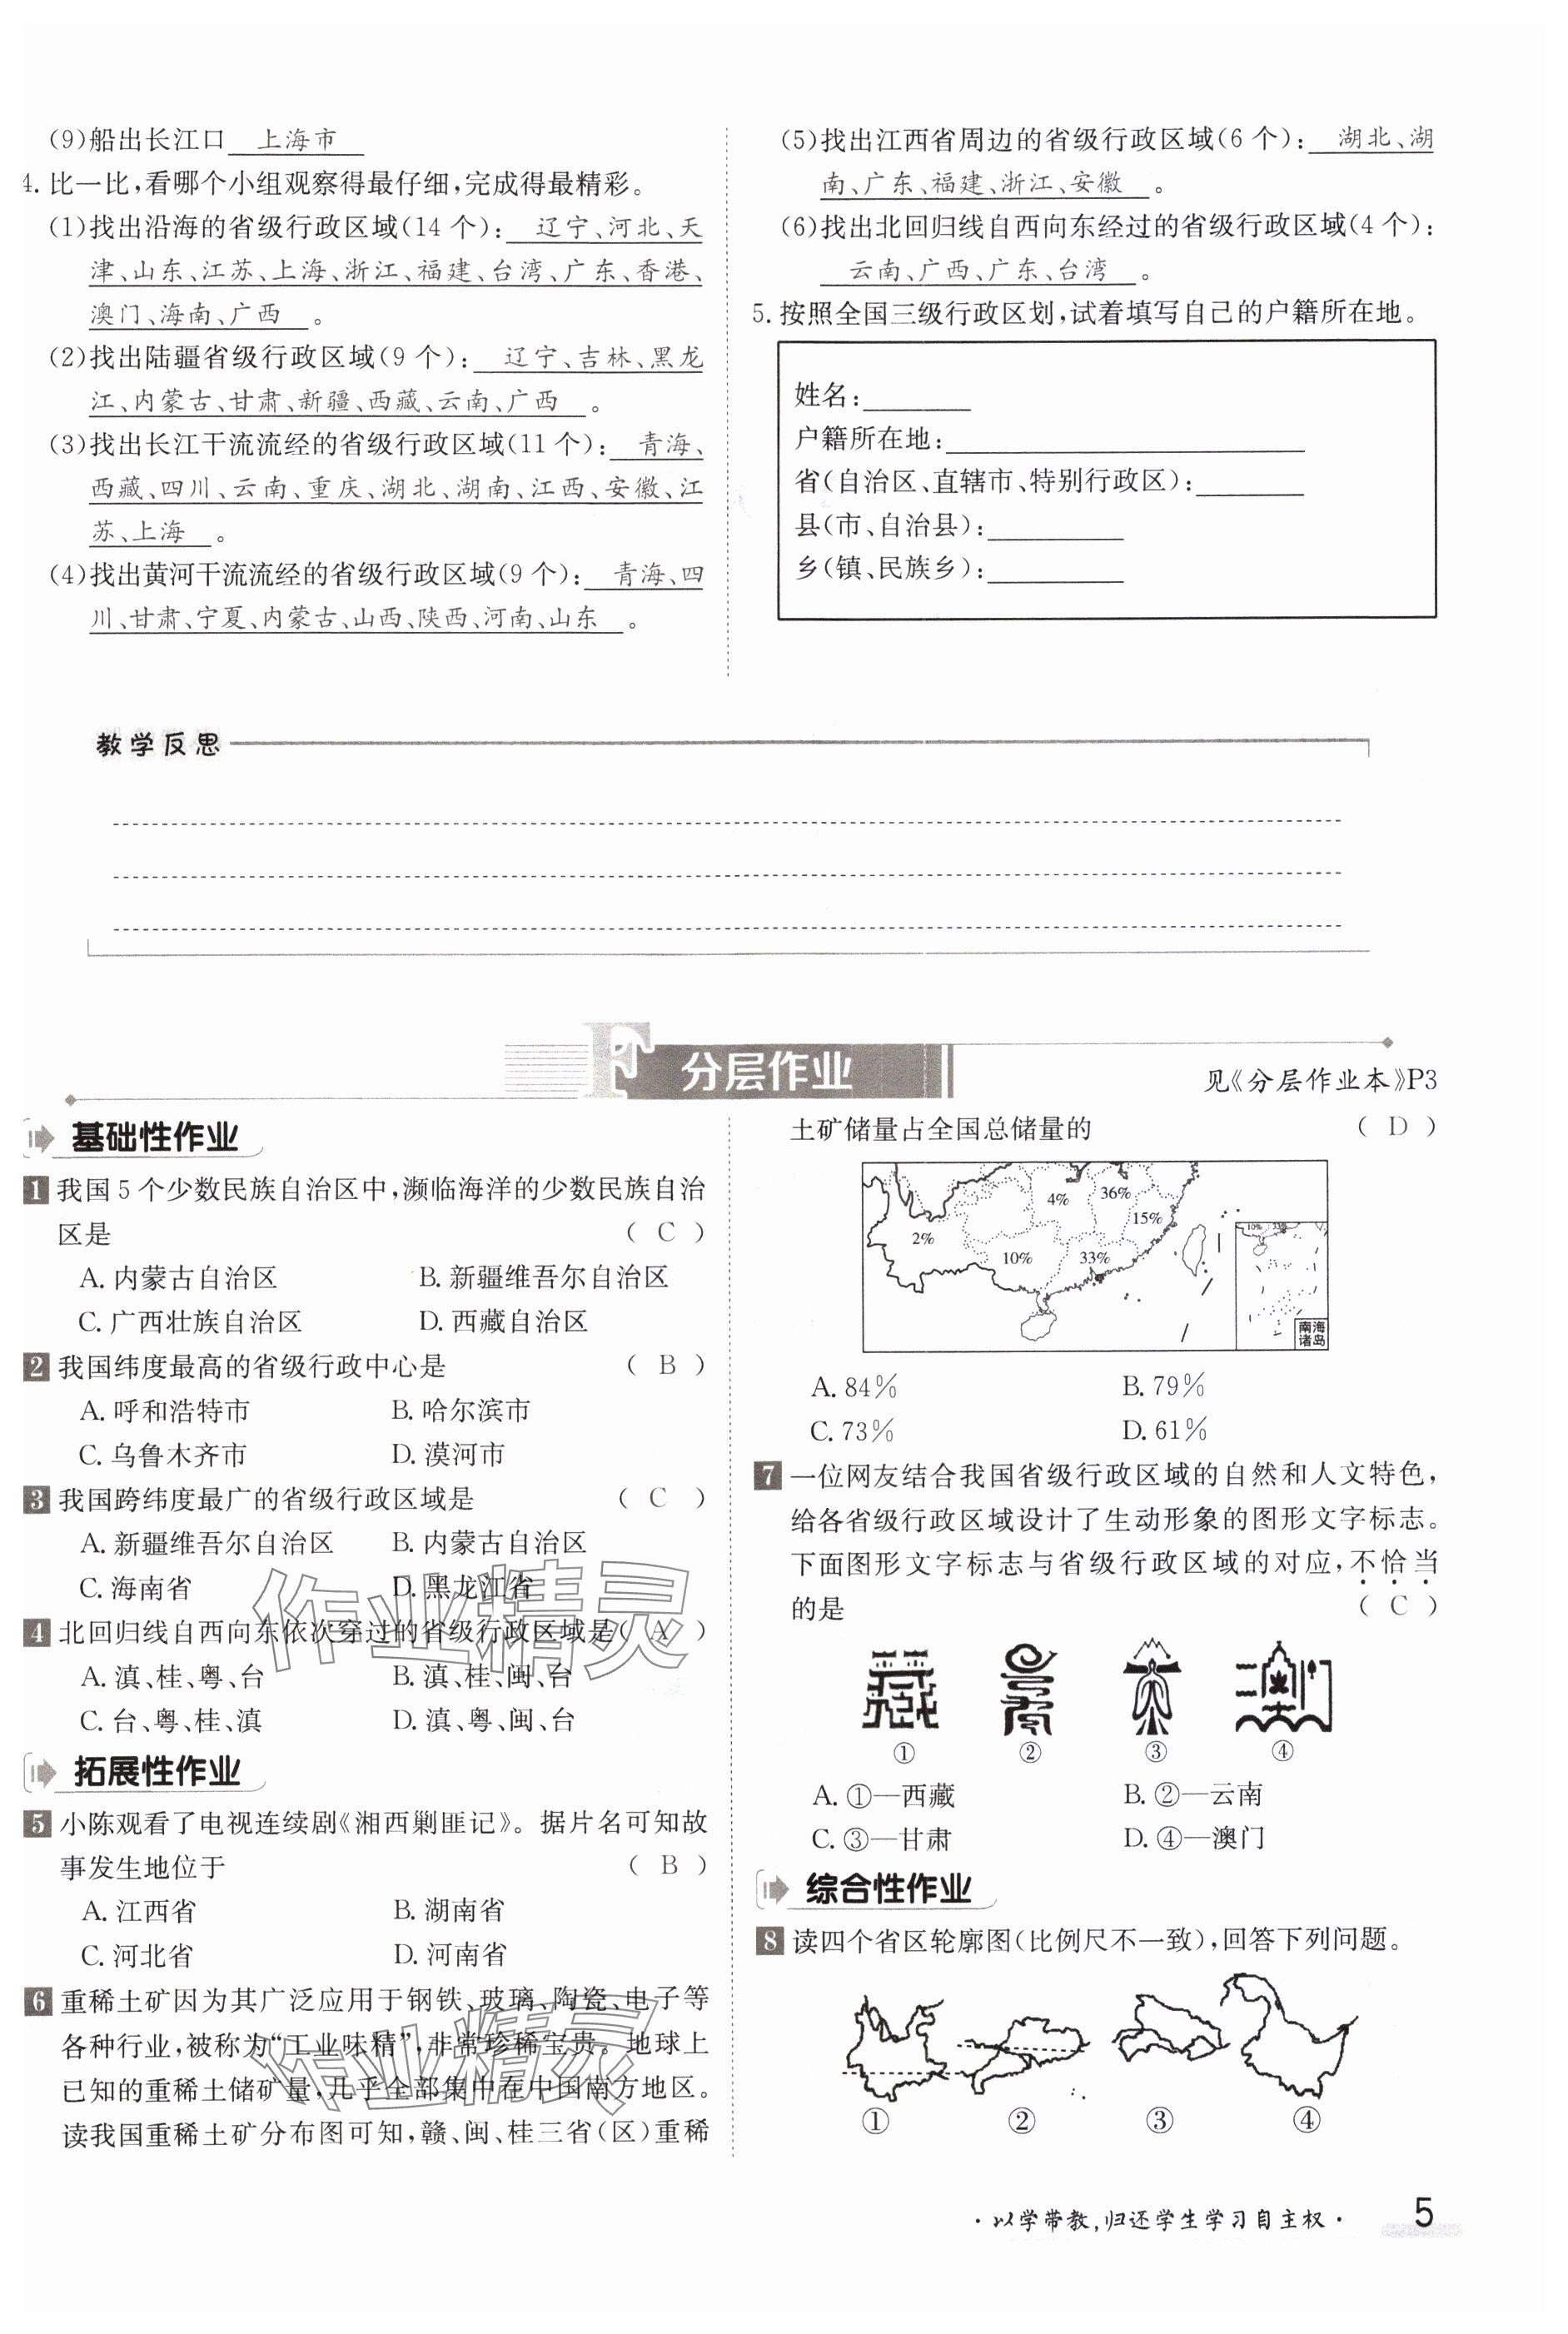 (9)船出长江口 上海市
4. 比一比,看哪个小组观察得最仔细,完成得最精彩。
(1)找出沿海的省级行政区域(14 个): 辽宁、河北、天
津、山东、江苏、上海、浙江、福建、台湾、广东、香港、
澳门、海南、广西 。
(2)找出陆疆省级行政区域(9 个): 辽宁、吉林、黑龙
江、内蒙古、甘肃、新疆、西藏、云南、广西 。
(3)找出长江干流流经的省级行政区域(11 个): 青海、
西藏、四川、云南、重庆、湖北、湖南、江西、安徽、江
苏、上海 。
(4)找出黄河干流流经的省级行政区域(9 个): 青海、四
川、甘肃、宁夏、内蒙古、山西、陕西、河南、山东 。
(5)找出江西省周边的省级行政区域(6 个): 湖北、湖
南、广东、福建、浙江、安徽 。
(6)找出北回归线自西向东经过的省级行政区域(4 个):
云南、广西、广东、台湾 。
5. 按照全国三级行政区划,试着填写自己的户籍所在地。
姓名:
户籍所在地:
省(自治区、直辖市、特别行政区):
县(市、自治县):
乡(镇、民族乡):
教学反思
F 分层作业
见《分层作业本》P3
基础性作业
1 我国 5 个少数民族自治区中,濒临海洋的少数民族自治
区是 ( C )
A. 内蒙古自治区 B. 新疆维吾尔自治区
C. 广西壮族自治区 D. 西藏自治区
2 我国纬度最高的省级行政中心是 ( B )
A. 呼和浩特市 B. 哈尔滨市
C. 乌鲁木齐市 D. 漠河市
3 我国跨纬度最广的省级行政区域是 ( C )
A. 新疆维吾尔自治区 B. 内蒙古自治区
C. 海南省 D. 黑龙江省
4 北回归线自西向东依次穿过的省级行政区域是( A )
A. 滇、桂、粤、台 B. 滇、桂、闽、台
C. 台、粤、桂、滇 D. 滇、粤、闽、台
拓展性作业
5 小陈观看了电视连续剧《湘西剿匪记》。据片名可知故
事发生地位于 ( B )
A. 江西省 B. 湖南省
C. 河北省 D. 河南省
6 重稀土矿因为其广泛应用于钢铁、玻璃、陶瓷、电子等
各种行业,被称为“工业味精”,非常珍稀宝贵。地球上
已知的重稀土储矿量,几乎全部集中在中国南方地区。
读我国重稀土矿分布图可知,赣、闽、桂三省(区)重稀
土矿储量占全国总储量的 ( D )
4% 36%
15%
2%
10% 33%
10% 33%
南海
诸岛
A. 84% B. 79%
C. 73% D. 61%
7 一位网友结合我国省级行政区域的自然和人文特色,
给各省级行政区域设计了生动形象的图形文字标志。
下面图形文字标志与省级行政区域的对应,不恰当
的是 ( C )
① ② ③ ④
A. ①—西藏 B. ②—云南
C. ③—甘肃 D. ④—澳门
综合性作业
8 读四个省区轮廓图(比例尺不一致),回答下列问题。
① ② ③ ④
作业精灵
作业精灵
· 以学带教,归还学生学习自主权 · 5